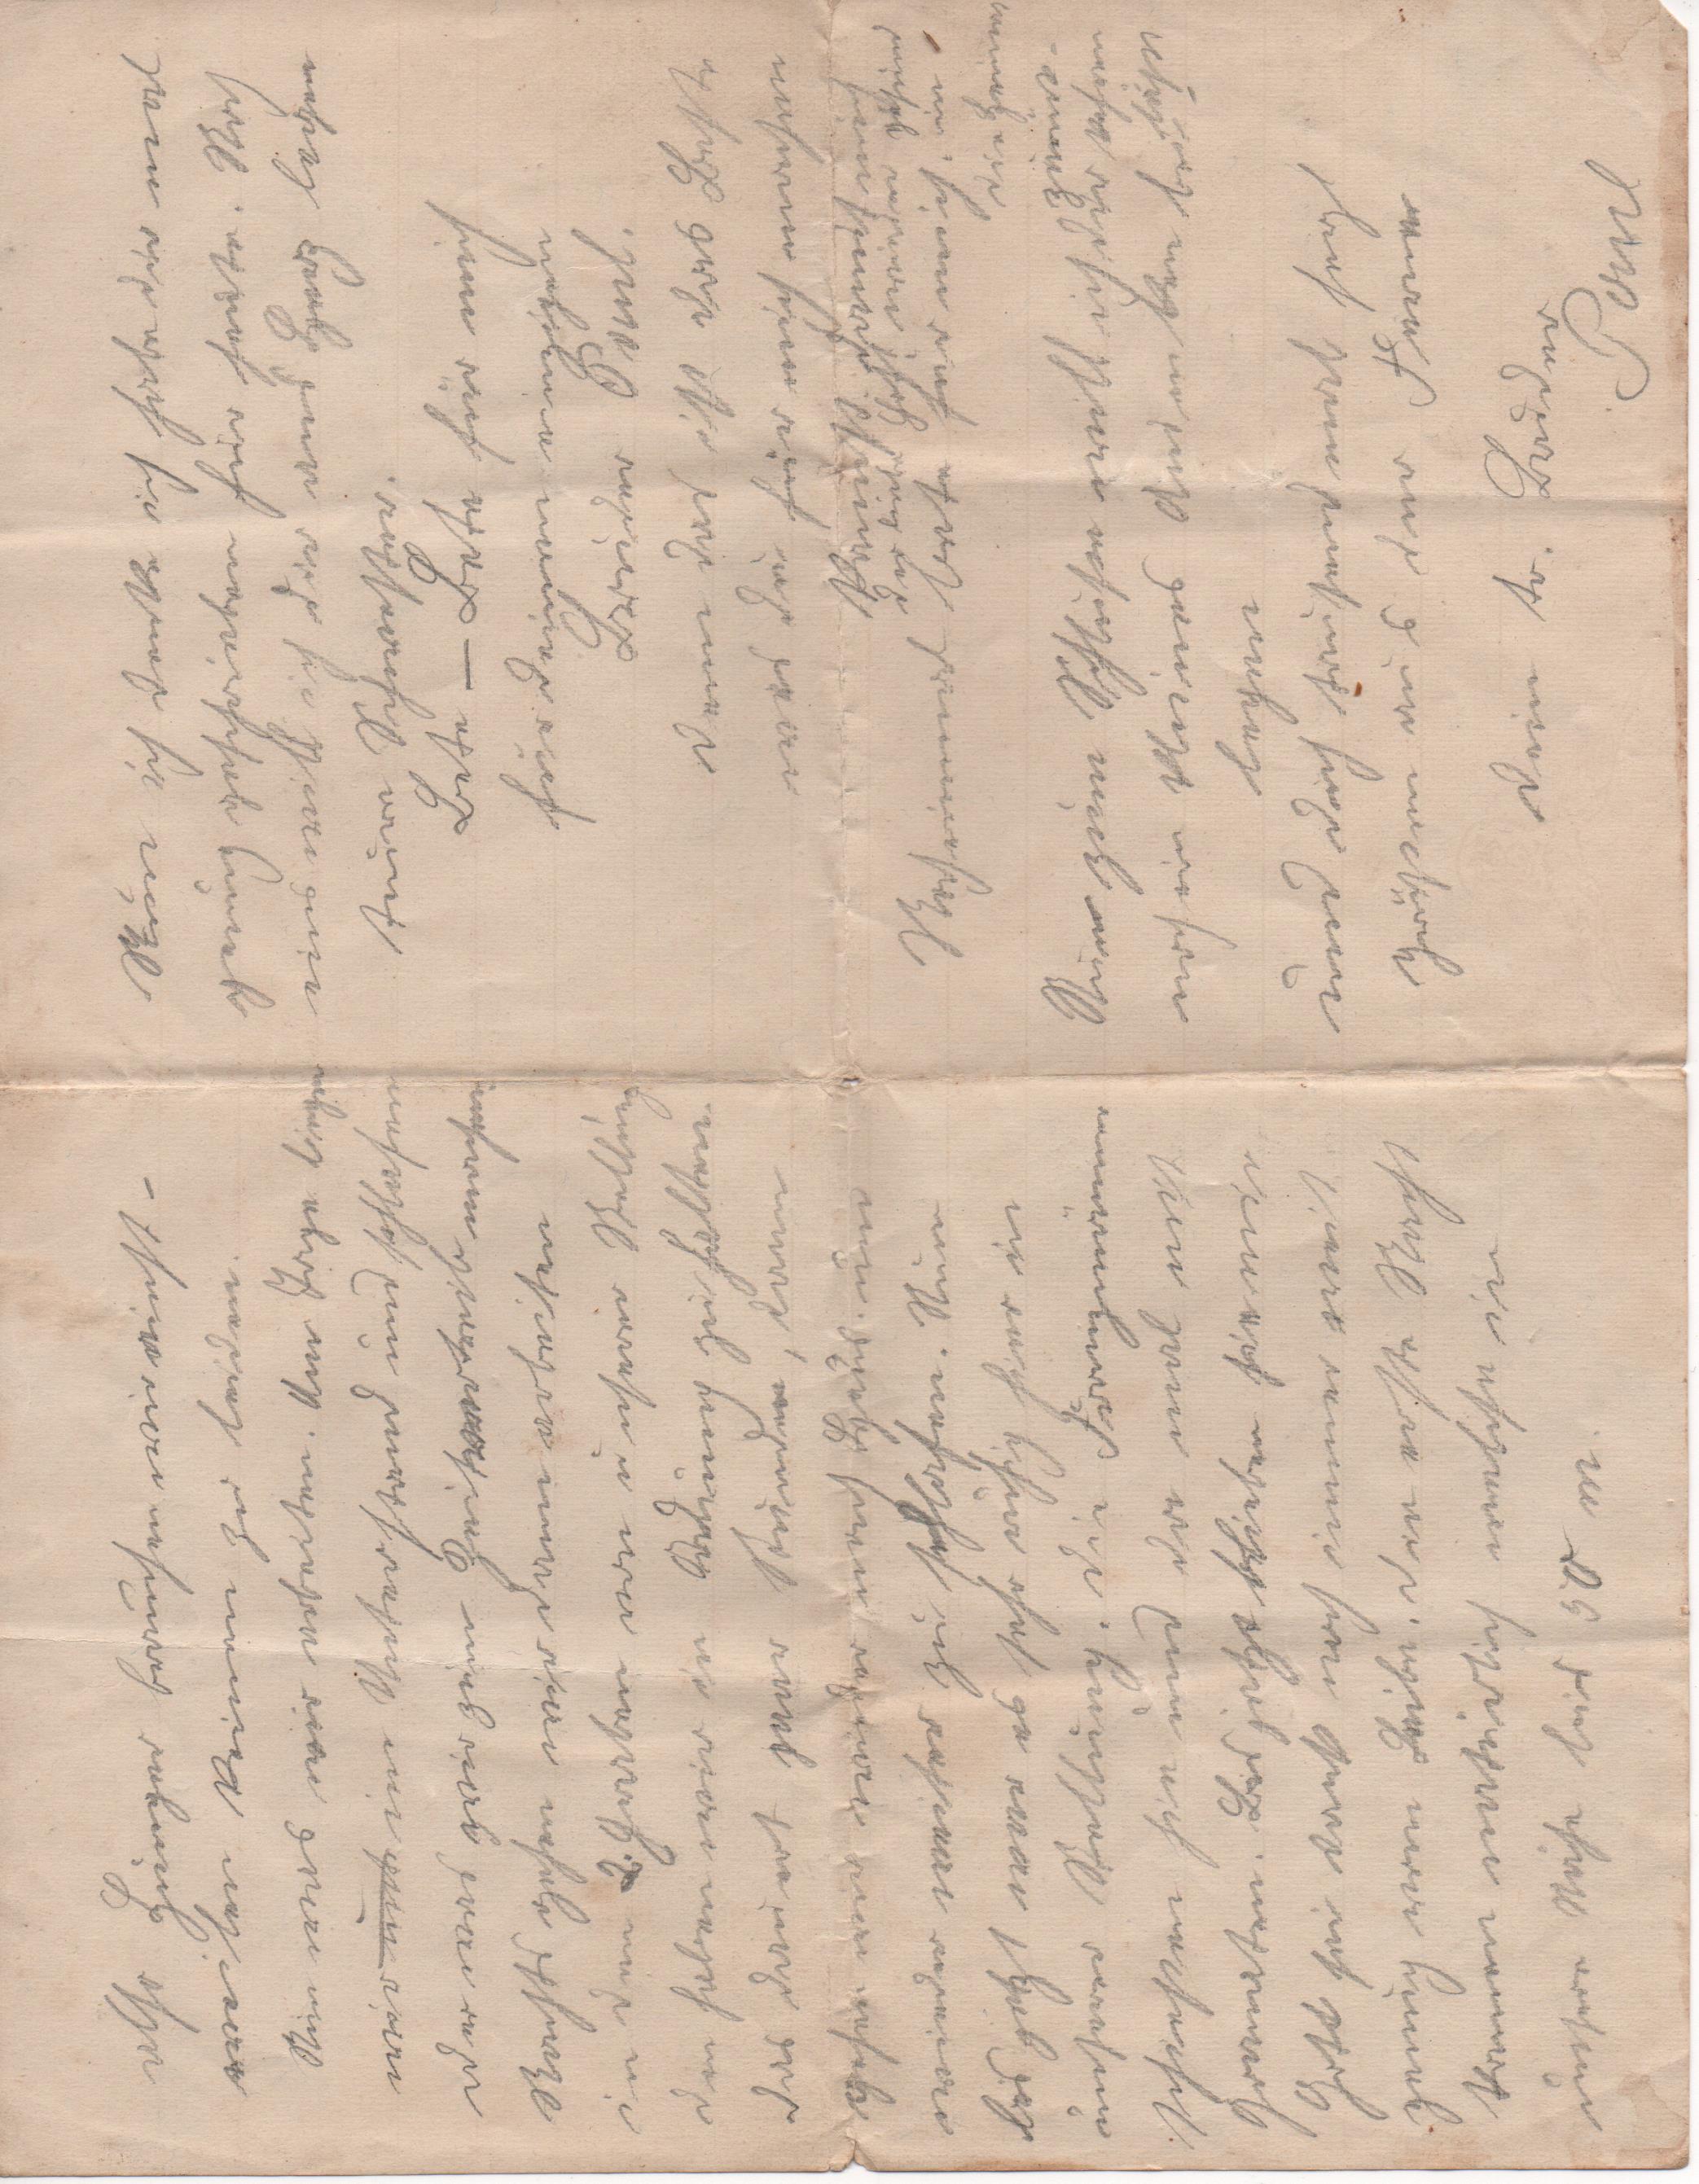 also Hunger brauchen wir einst-
weilen keinen zu leiden.
Nun was wir arbeiten. Am Tage liegen
wir unt im Unterstand und schlafen
oder was wir zum Zeitvertreib machen.
Nachts gehen wir dann arbeiten
in den 2. Graben von unserer Stellung
den haben wir in Ordnung zu halten.
das dauert paar Stunden, dann
gehen wir wieder nach Haus. um
wieder weiter zu schlafen. Nun
bis jetzt war es sehr ruhig hier in
unserer Stellung. Die Franzmänner
schießen hie und da mal mit
Granaten. Bis jetzt blieben sie mir
Gott sei dank noch immer weit
genug vom Leibe. Die erste Nacht
kamen natürlich welche in
unsere Nähe bis 50 m.
Nun ich denke ich habe dir mal
genug geschrieben für heute. Noch
eins will ich dir ans Herz legen
teure Schwester.
Bete – Bete für mich
für deinen einzigen
Bruder Paul.
denn das ist das Beste
was du für mich machen
kannst. damit mich
der liebe Gott wieder gesund
Nocheinmal bete für mich. in
die Heimat
zurück-
Nun zum Schluße will ich dir kehren
noch ein kleines Andenken bei läßt
legen
und dich tausend mal herzl
grüßen aus der Ferne
Dein tr. Bruder
Paul